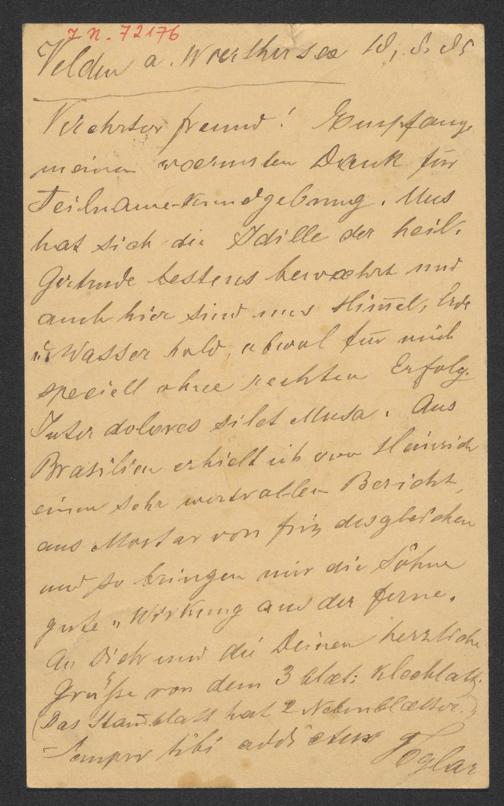 J. N. 72176
Velden a. Woerthersee 18, 8. 85
Verehrter freund! Empfange
meinen waermsten Dank für
Teilname-Kundgebung. Uns
hat sich die Idille der heil.
Gertrude bestens bewaehrt und
auch hier sind uns Him̄el, Erde
u. Wasser hold, obwol für mich
speciell ohne rechten Erfolg.
Inter dolores silet Musa. Aus
Brasilien erhielt ich von Heinrich
einen sehr wertvollen Bericht,
aus Mostar von friz desgleichen
und so bringen mir die Söhne
gute „Wirkung aus der ferne.
An Dich und die Deinen herzliche
Grüße von dem 3 blaet: Kleeblatt.
(Das Stam̄blatt hat 2 Nebenblaetter.)
Semper tibi addictus